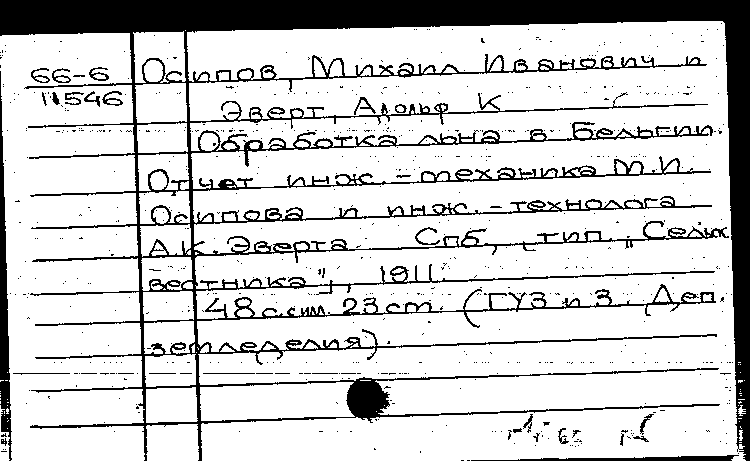 66-6
11546
Осипов, Михаил Иванович и
Эверт, Адольф К
Обработка льна в Бельгии.
Отчет инж.-механика М.И.
Осипова и инж.-технолога
А.К. Эверта. Спб, тип. „Сельск.
вестника", 1911.
48 с. с илл. 23 см. (ГУЗ и З. Деп.
земледелия).